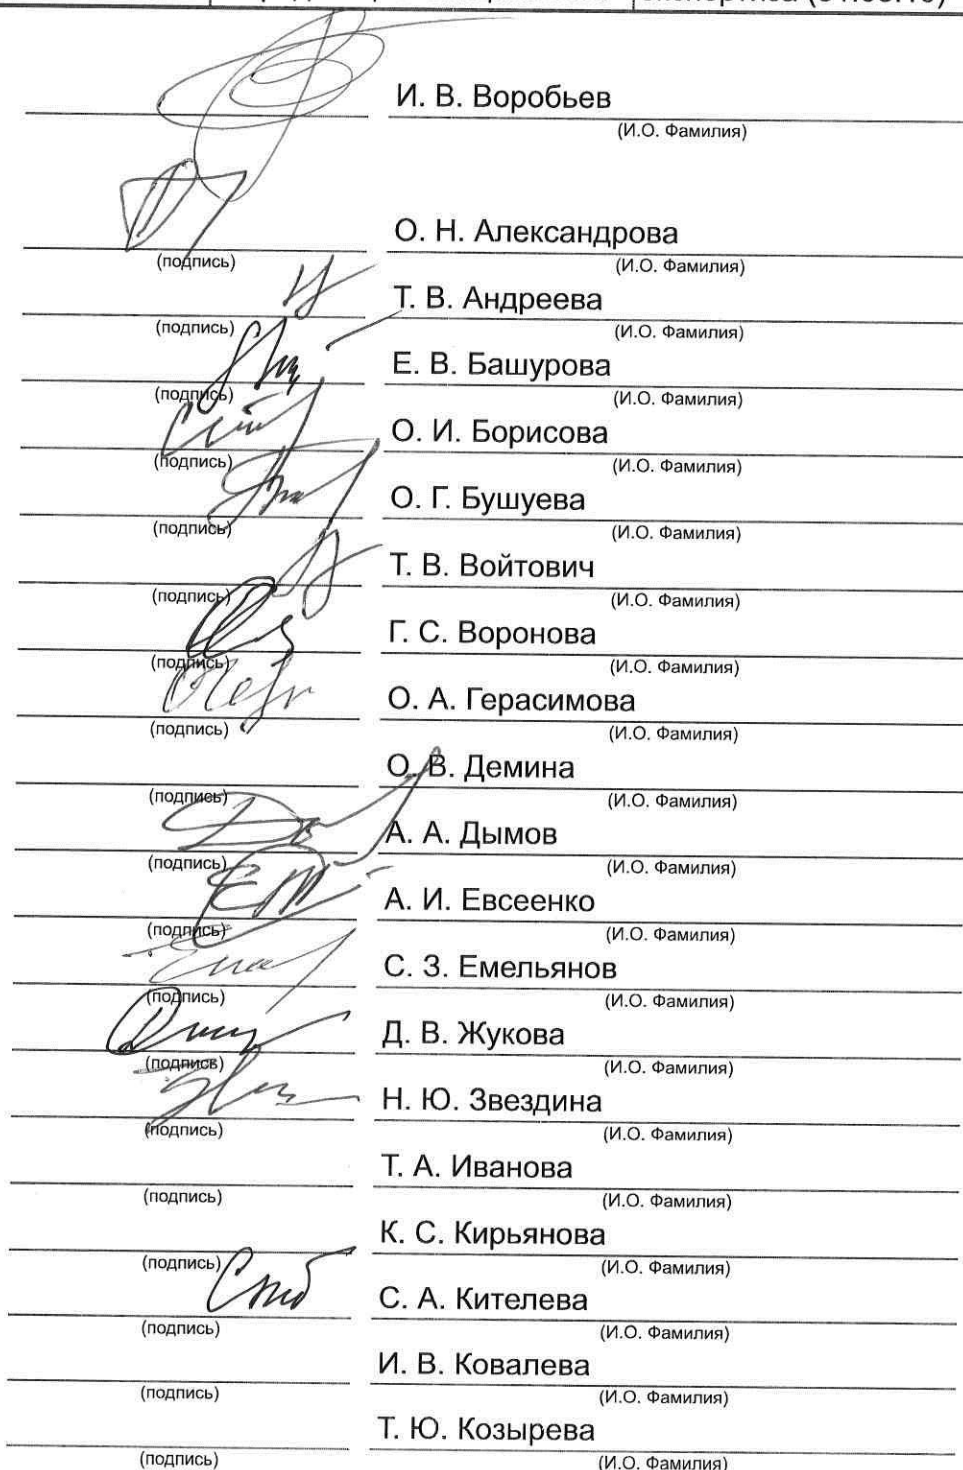 И. В. Воробьев
(И.О. Фамилия)
О. Н. Александрова
(подпись) (И.О. Фамилия)
Т. В. Андреева
(подпись) (И.О. Фамилия)
Е. В. Башурова
(подпись) (И.О. Фамилия)
О. И. Борисова
(подпись) (И.О. Фамилия)
О. Г. Бушуева
(подпись) (И.О. Фамилия)
Т. В. Войтович
(подпись) (И.О. Фамилия)
Г. С. Воронова
(подпись) (И.О. Фамилия)
О. А. Герасимова
(подпись) (И.О. Фамилия)
О. В. Демина
(подпись) (И.О. Фамилия)
А. А. Дымов
(подпись) (И.О. Фамилия)
А. И. Евсеенко
(подпись) (И.О. Фамилия)
С. З. Емельянов
(подпись) (И.О. Фамилия)
Д. В. Жукова
(подпись) (И.О. Фамилия)
Н. Ю. Звездина
(подпись) (И.О. Фамилия)
Т. А. Иванова
(подпись) (И.О. Фамилия)
К. С. Кирьянова
(подпись) (И.О. Фамилия)
С. А. Кителева
(подпись) (И.О. Фамилия)
И. В. Ковалева
(подпись) (И.О. Фамилия)
Т. Ю. Козырева
(подпись) (И.О. Фамилия)